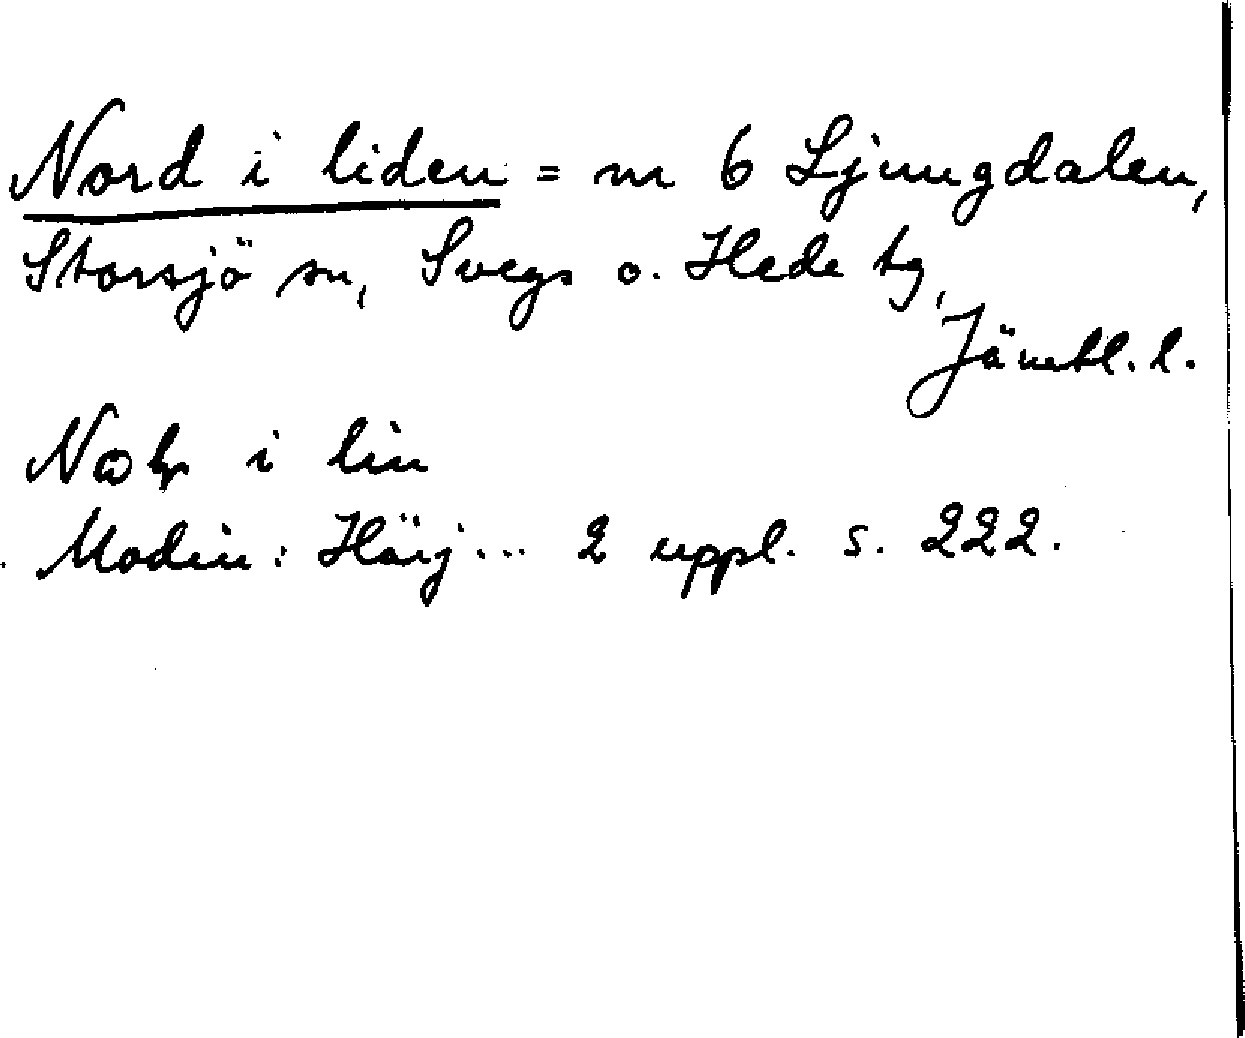 Nord i liden = nr 6 Ljungdalen,
Storsjö sn, Svegs o. Hede tg,
Jämtl. l.
i lin
Modin: Härj... 2 uppl. s. 222.